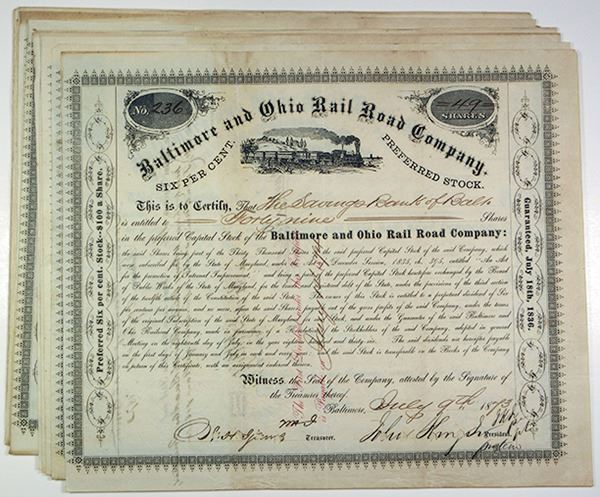 No. 236
49
SHARES
Baltimore and Ohio Rail Road Company.
SIX PER CENT. PREFERRED STOCK.
This is to Certify, That The Savings Bank of Balt
is entitled to Forty nine Shares
in the preferred Capital Stock of the Baltimore and Ohio Rail Road Company:
the said Shares being part of the Thirty Thousand Shares of the said preferred Capital Stock of the said Company, which
were subscribed for by the State of Maryland, under the Act of December Session, 1835, ch. 395, entitled "An Act
for the promotion of Internal Improvement," and being of the preferred Capital Stock heretofore exchanged by the Board
of Public Works of the State of Maryland, for the bonds or registered debt of the State, under the provisions of the third section
of the twelfth article of the Constitution of the said State. The owner of this Stock is entitled to a perpetual dividend of Six
per centum per annum, and no more, out of the
the original Subscription of the said State of and under the Guarantee of the said Baltimore and
Ohio Railroad Company, made in pursuance of a Resolution of the Stockholders of the said Company, adopted in general
Meeting on the eighteenth day of July, in the year eighteen hundred and thirty six. The said dividends are hereafter payable
on the first days of January and July in each and every year. the said Stock is transferable on the Books of the Company
on return of this Certificate, with an assignment endorsed thereon.
Witness the Seal of the Company, attested by the Signature of
the Treasurer thereof.
Baltimore, July 9th 1873
Treasurer.
John King Jr
President.
Preferred Six per cent. Stock--$100 a Share.
Guaranteed, July 18th, 1836.